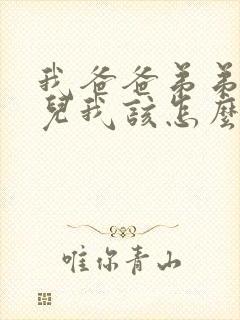 我爸爸弟弟
兒我該怎麼
唯你青山